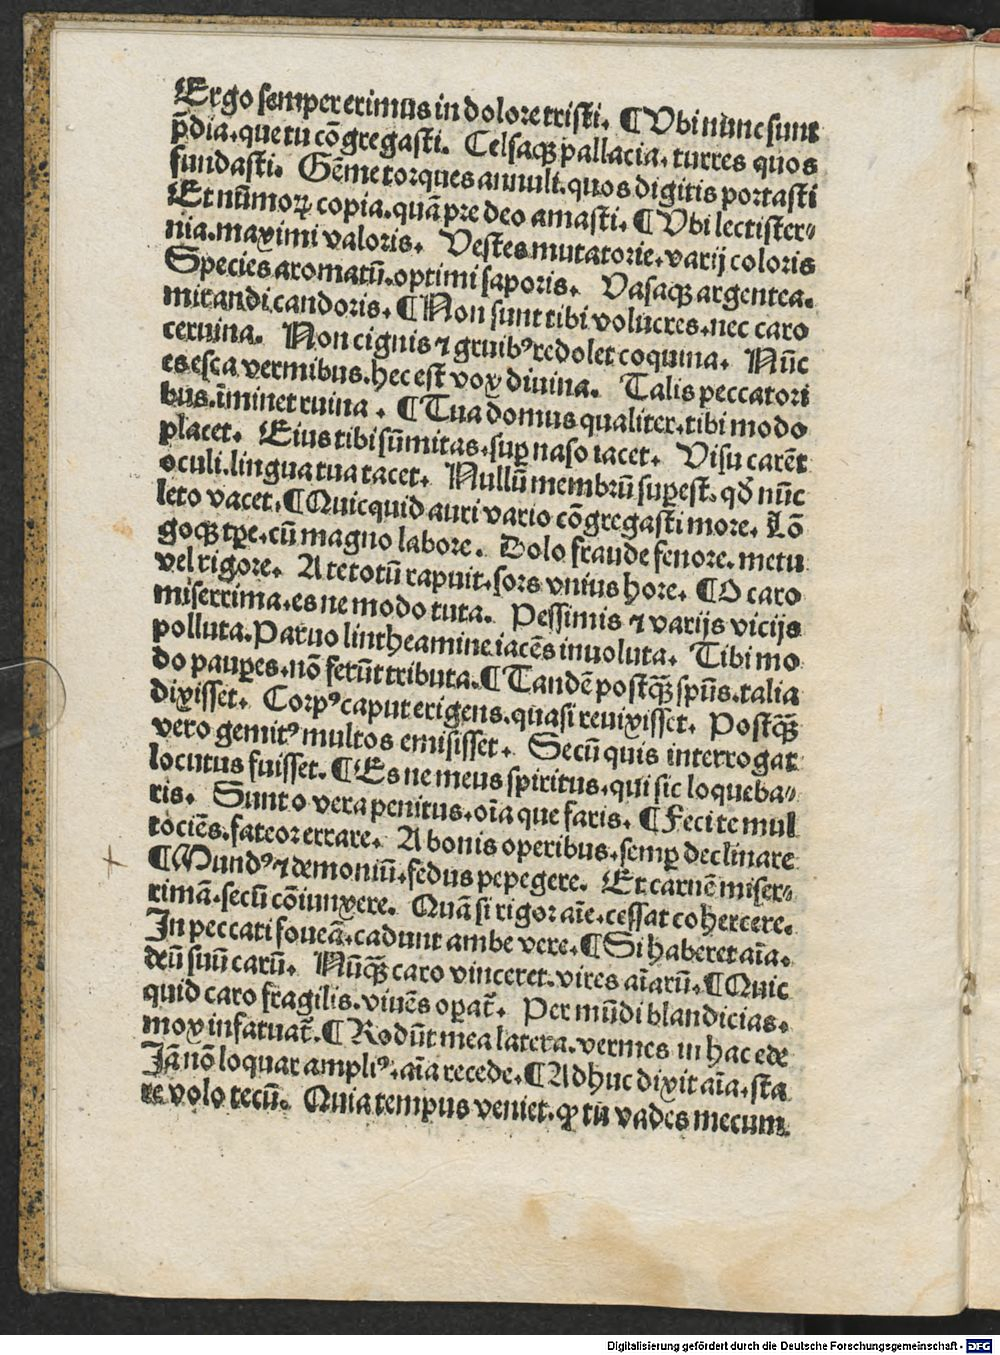 Ergo semper erimus in dolore tristi. ¶ Vbi nunc sunt
p̄dia. que tu cōgregasti. Celsaqꝫ pallacia. turres quos
fundasti. Gēme torques annuli. quos digitis portasti
Et nūmoꝝ copia. quā pre deo amasti. ¶ Vbi lectister⸗
nia. maximi valoris. Vestes mutatorie. varij coloris
Species aromatū. optimi saporis. Vasaqꝫ argentea.
mirandi candoris. ¶ Non sunt tibi volucres. nec caro
ceruina. Non cignis ⁊ gruibꝰ redolet coquina. Nūc
es esca vermibus. hec est vox diuina. Talis peccatori
bus. īminet ruina. ¶ Tua domus qualiter. tibi modo
placet. Eius tibi sūmitas. suꝑ naso iacet. Visu carēt
oculi. lingua tua tacet. Nullū membrū suꝑest. qđ nūc
leto vacet. ¶ Quicquid auri vario cōgregasti more. Lō
goqꝫ tꝑe. cū magno labore. Dolo fraude fenore. metu
vel rigore. A te totū rapuit. sors vnius hore. ¶ O caro
miserrima. es ne modo tuta. Pessimis ⁊ varijs vicijs
polluta. Paruo lintheamine iacēs inuoluta. Tibi mo
do pauꝑes. nō ferūt tributa. ¶ Tandē postqꝫ̄ spūs. talia
dixisset. Corpꝰ caput erigens. quasi reuixisset. Postqꝫ̄
vero gemitꝰ multos emisisset. Secū quis interrogat
locutus fuisset. ¶ Es ne meus spiritus. qui sic loqueba⸗
ris. Sunt o vera penitus. oīa que faris. ¶ Feci te mul
tociēs. fateor errare. A bonis operibus. semꝑ declinare
¶ Mundꝰ ⁊ demoniū. fedus pepegere. Et carnē miser⸗
rimā. secū cōiunxere. Quā si rigor aīe. cessat cohercere.
In peccati foueā. cadunt ambe vere. ¶ Si haberet aīa.
deū suū carū. Nūqꝫ̄ caro vinceret. vires aīarū. ¶ Quic
quid caro fragilis. viuēs oꝑat̄. Per mūdi blandicias.
mox infatuat̄. ¶ Rodūt mea latera. vermes in hac ede
Jā nō loquar ampliꝰ. aīa recede. ¶ Adhuc dixit aīa. sta
re volo tecū. Quia tempus veniet. ꝙ tu vades mecum
Digitalisierung gefördert durch die Deutsche Forschungsgemeinschaft - DFG